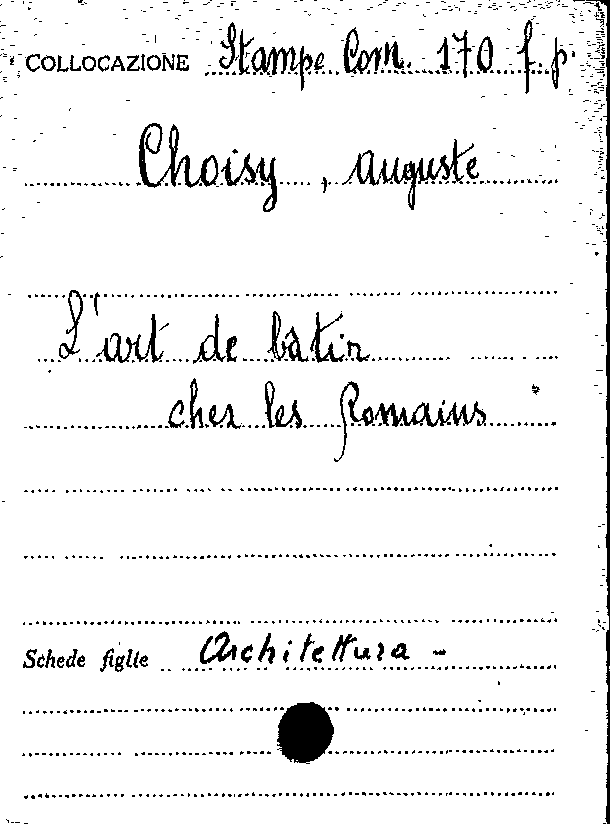 COLLOCAZIONE Stampe Com. 170 f.p.
Choisy, Auguste
L'art de bâtir
chez les Romains
Schede figlie Architettura -